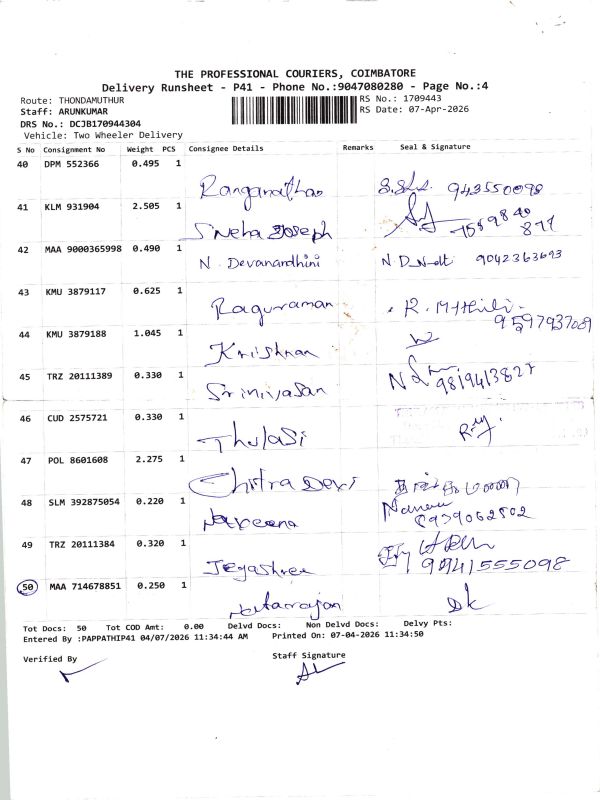 THE PROFESSIONAL COURIERS, COIMBATORE
Delivery Runsheet - P41 - Phone No.:9047080280 - Page No.:4
Route: THONDAMUTHUR RS No.: 1709443
Staff: ARUNKUMAR RS Date: 07-Apr-2026
DRS No.: DCJB170944304
Vehicle: Two Wheeler Delivery
S No Consignment No Weight PCS Consignee Details Remarks Seal & Signature
40 DPM 552366 0.495 1
Ranganathan 943550098
41 KLM 931904 2.505 1
Sneha Joseph
42 MAA 9000365998 0.490 1
N. Devanandhini 9042363693
43 KMU 3879117 0.625 1
Raguraman R. Mythili
9597937089
44 KMU 3879188 1.045 1
Krishnan
45 TRZ 20111389 0.330 1
Srinivasan 9819413827
46 CUD 2575721 0.330 1
Thulasi
47 POL 8601608 2.275 1
Chitra Devi
48 SLM 392875054 0.220 1
Naveena 8939062502
49 TRZ 20111384 0.320 1
Jegashree 9941555098
50 MAA 714678851 0.250 1
Natarajan
Tot Docs: 50 Tot COD Amt: 0.00 Delvd Docs: Non Delvd Docs: Delvy Pts:
Entered By :PAPPATHIP41 04/07/2026 11:34:44 AM Printed On: 07-04-2026 11:34:50
Verified By Staff Signature